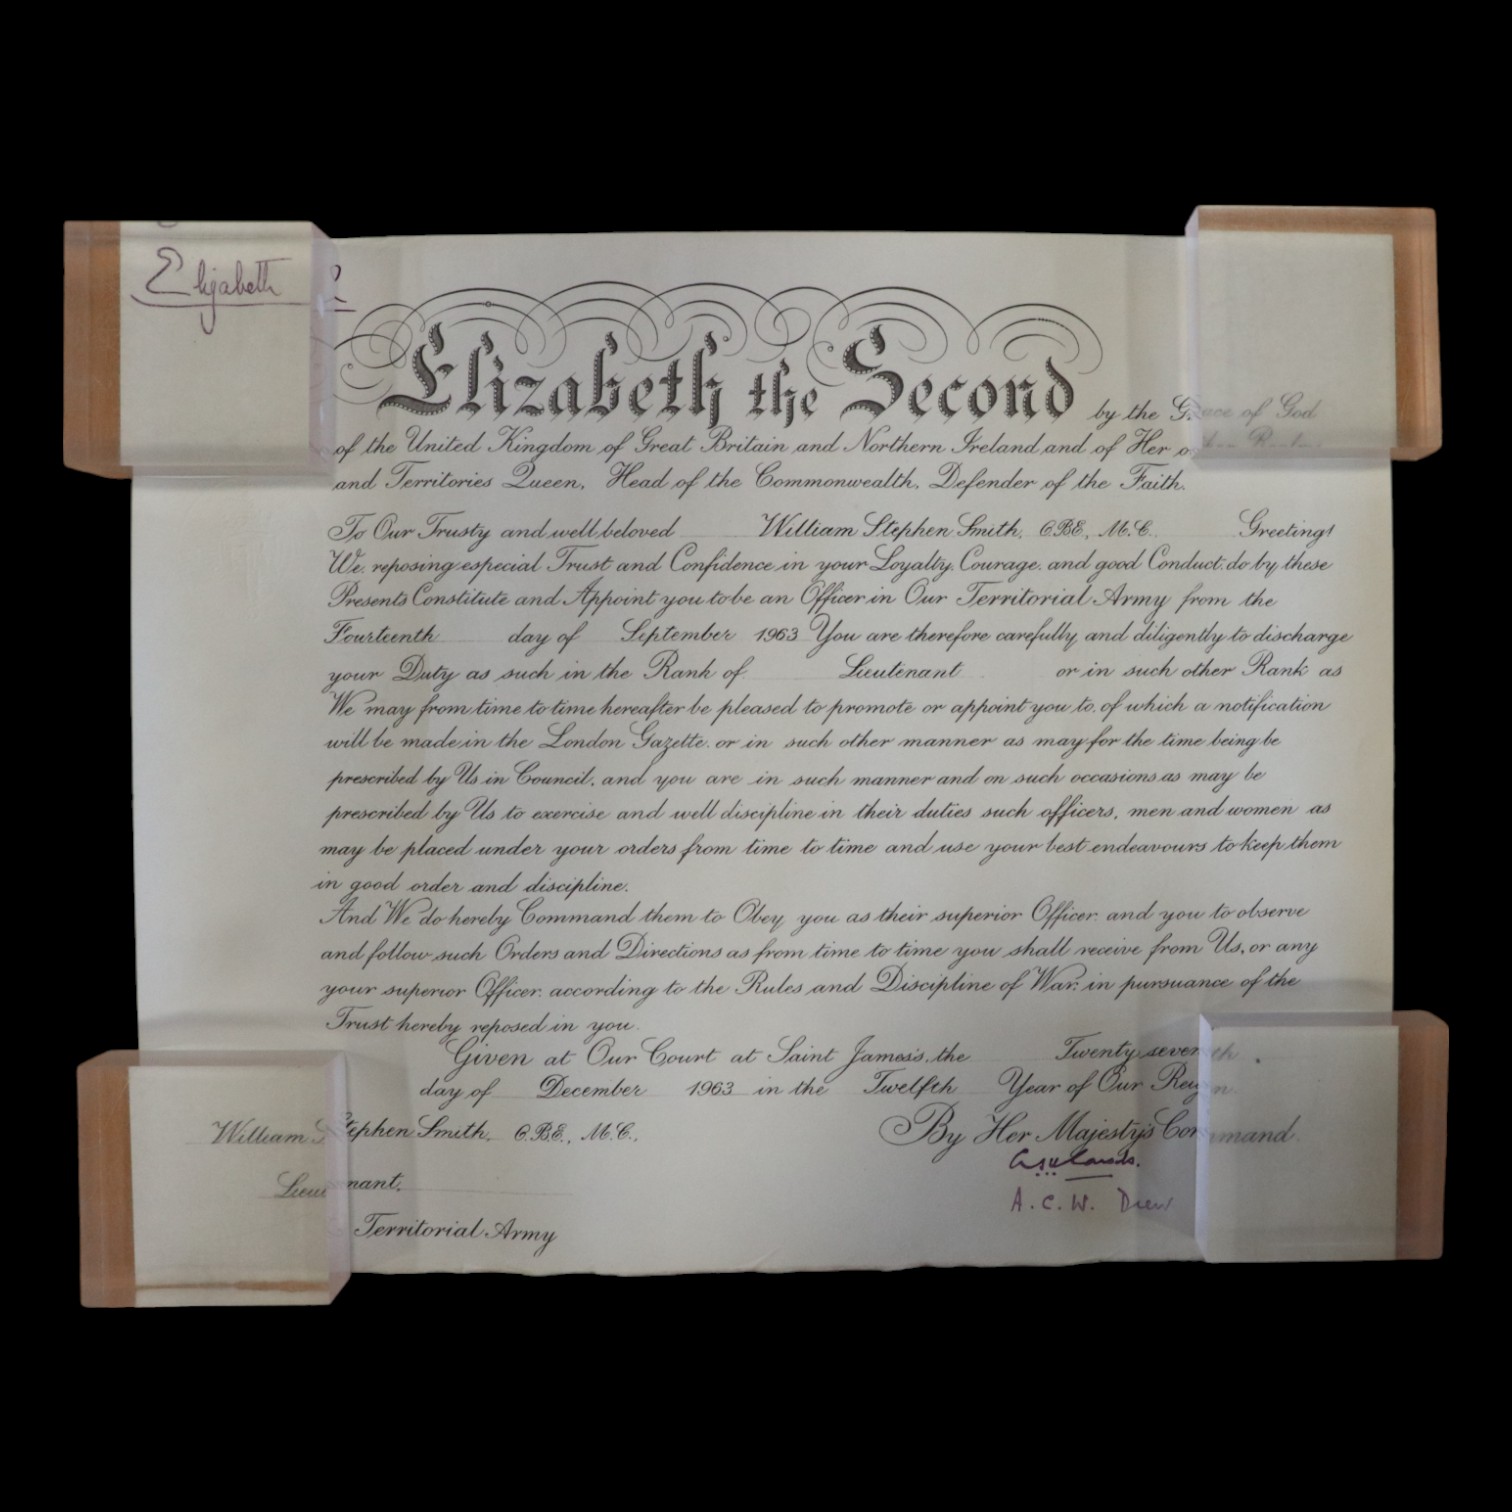 Elizabeth R
Elizabeth the Second by the Grace of God
of the United Kingdom of Great Britain and Northern Ireland and of Her
and Territories Queen, Head of the Commonwealth, Defender of the Faith.
To Our Trusty and well beloved William Stephen Smith, C.B.E., M.C. Greeting!
We, reposing especial Trust and Confidence in your Loyalty, Courage, and good Conduct, do by these
Presents Constitute and Appoint you to be an Officer in Our Territorial Army from the
Fourteenth day of September 1963 You are therefore carefully and diligently to discharge
your Duty as such in the Rank of Lieutenant or in such other Rank as
We may from time to time hereafter be pleased to promote or appoint you to, of which a notification
will be made in the London Gazette, or in such other manner as may for the time being be
prescribed by Us in Council, and you are in such manner and on such occasions as may be
prescribed by Us to exercise and well discipline in their duties such officers, men and women as
may be placed under your orders from time to time and use your best endeavours to keep them
in good order and discipline.
And We do hereby Command them to Obey you as their superior Officer, and you to observe
and follow such Orders and Directions as from time to time you shall receive from Us, or any
your superior Officer, according to the Rules and Discipline of War, in pursuance of the
Trust hereby reposed in you.
Given at Our Court at Saint James's, the Twenty seventh
day of December 1963 in the Twelfth Year of Our Reign
William Stephen Smith, C.B.E., M.C., By Her Majesty's Command
Lieutenant.
A. C. W. Drew
Territorial Army